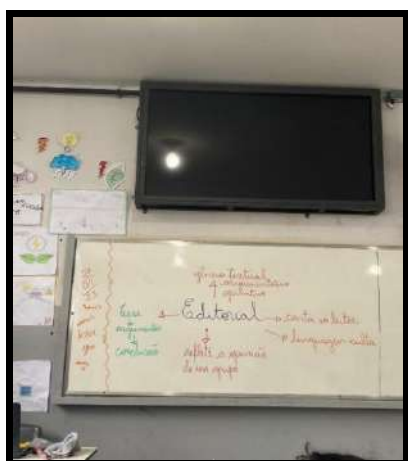 gênero textual
argumentativo
opinativo
Tese
argumentos
conclusão
Editorial
carta ao leitor
linguagem culta
reflete a opinião
de um grupo